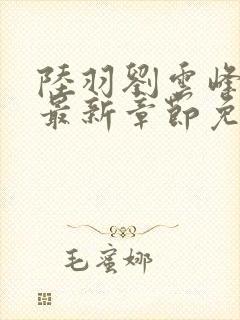 陸羽劉雲峰
最新章節免
毛蜜娜